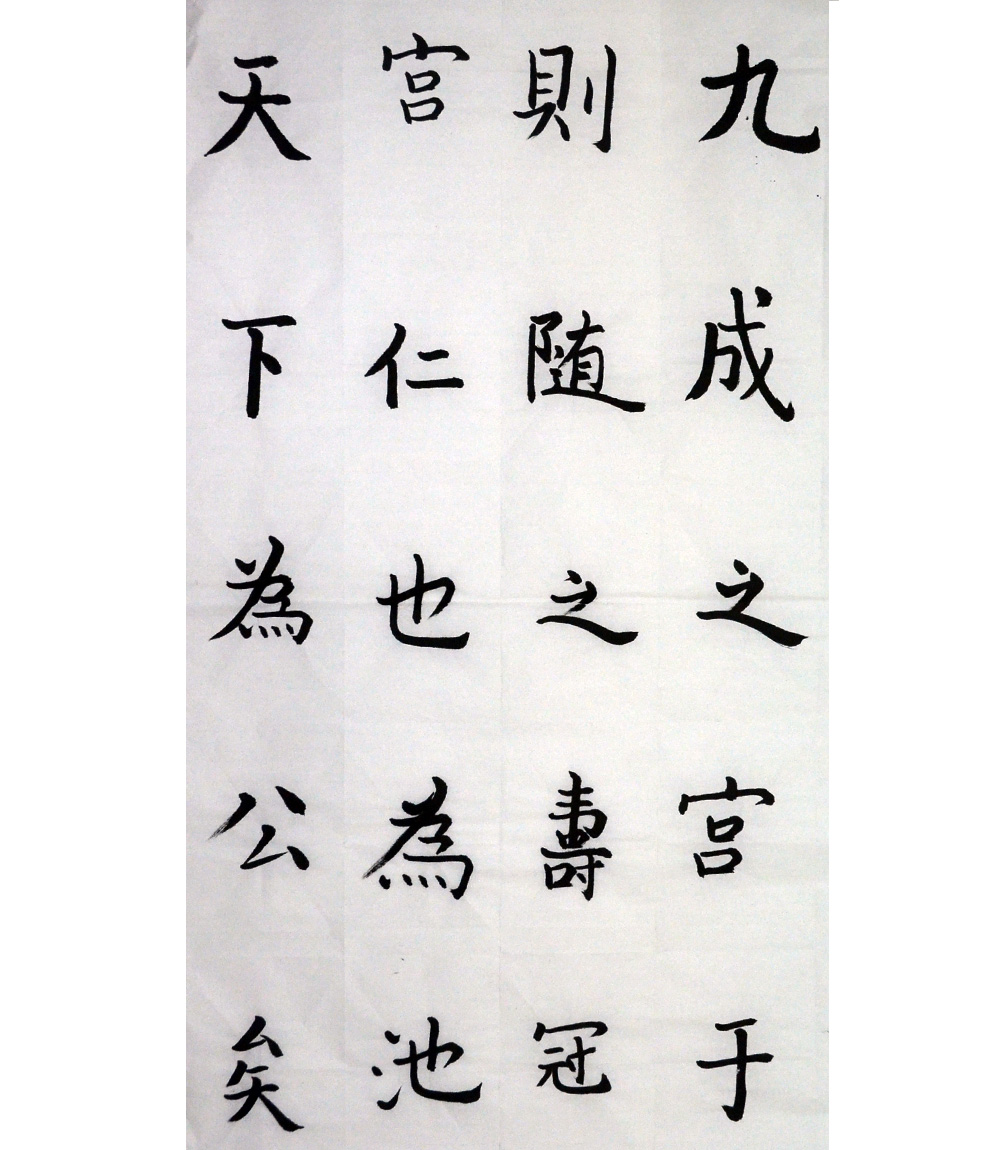 九成之宫于
則随之壽冠
宫仁也為池
天下為公矣